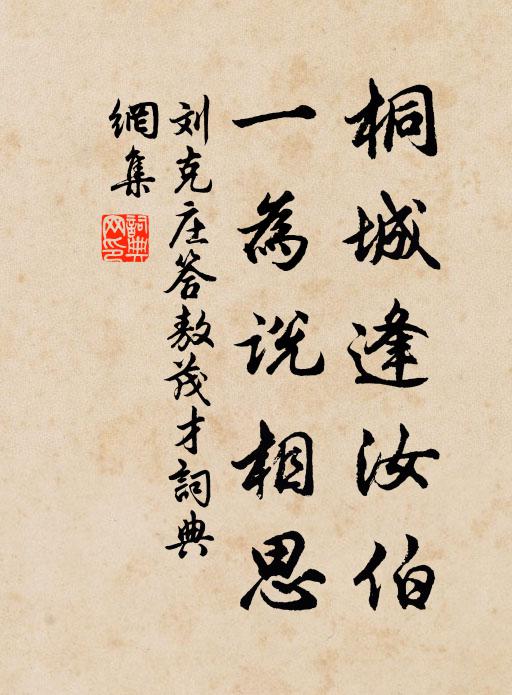 桐城逢汝伯
一為说相思
刘克庄答敖茂才詞典
網集
詞典
网印